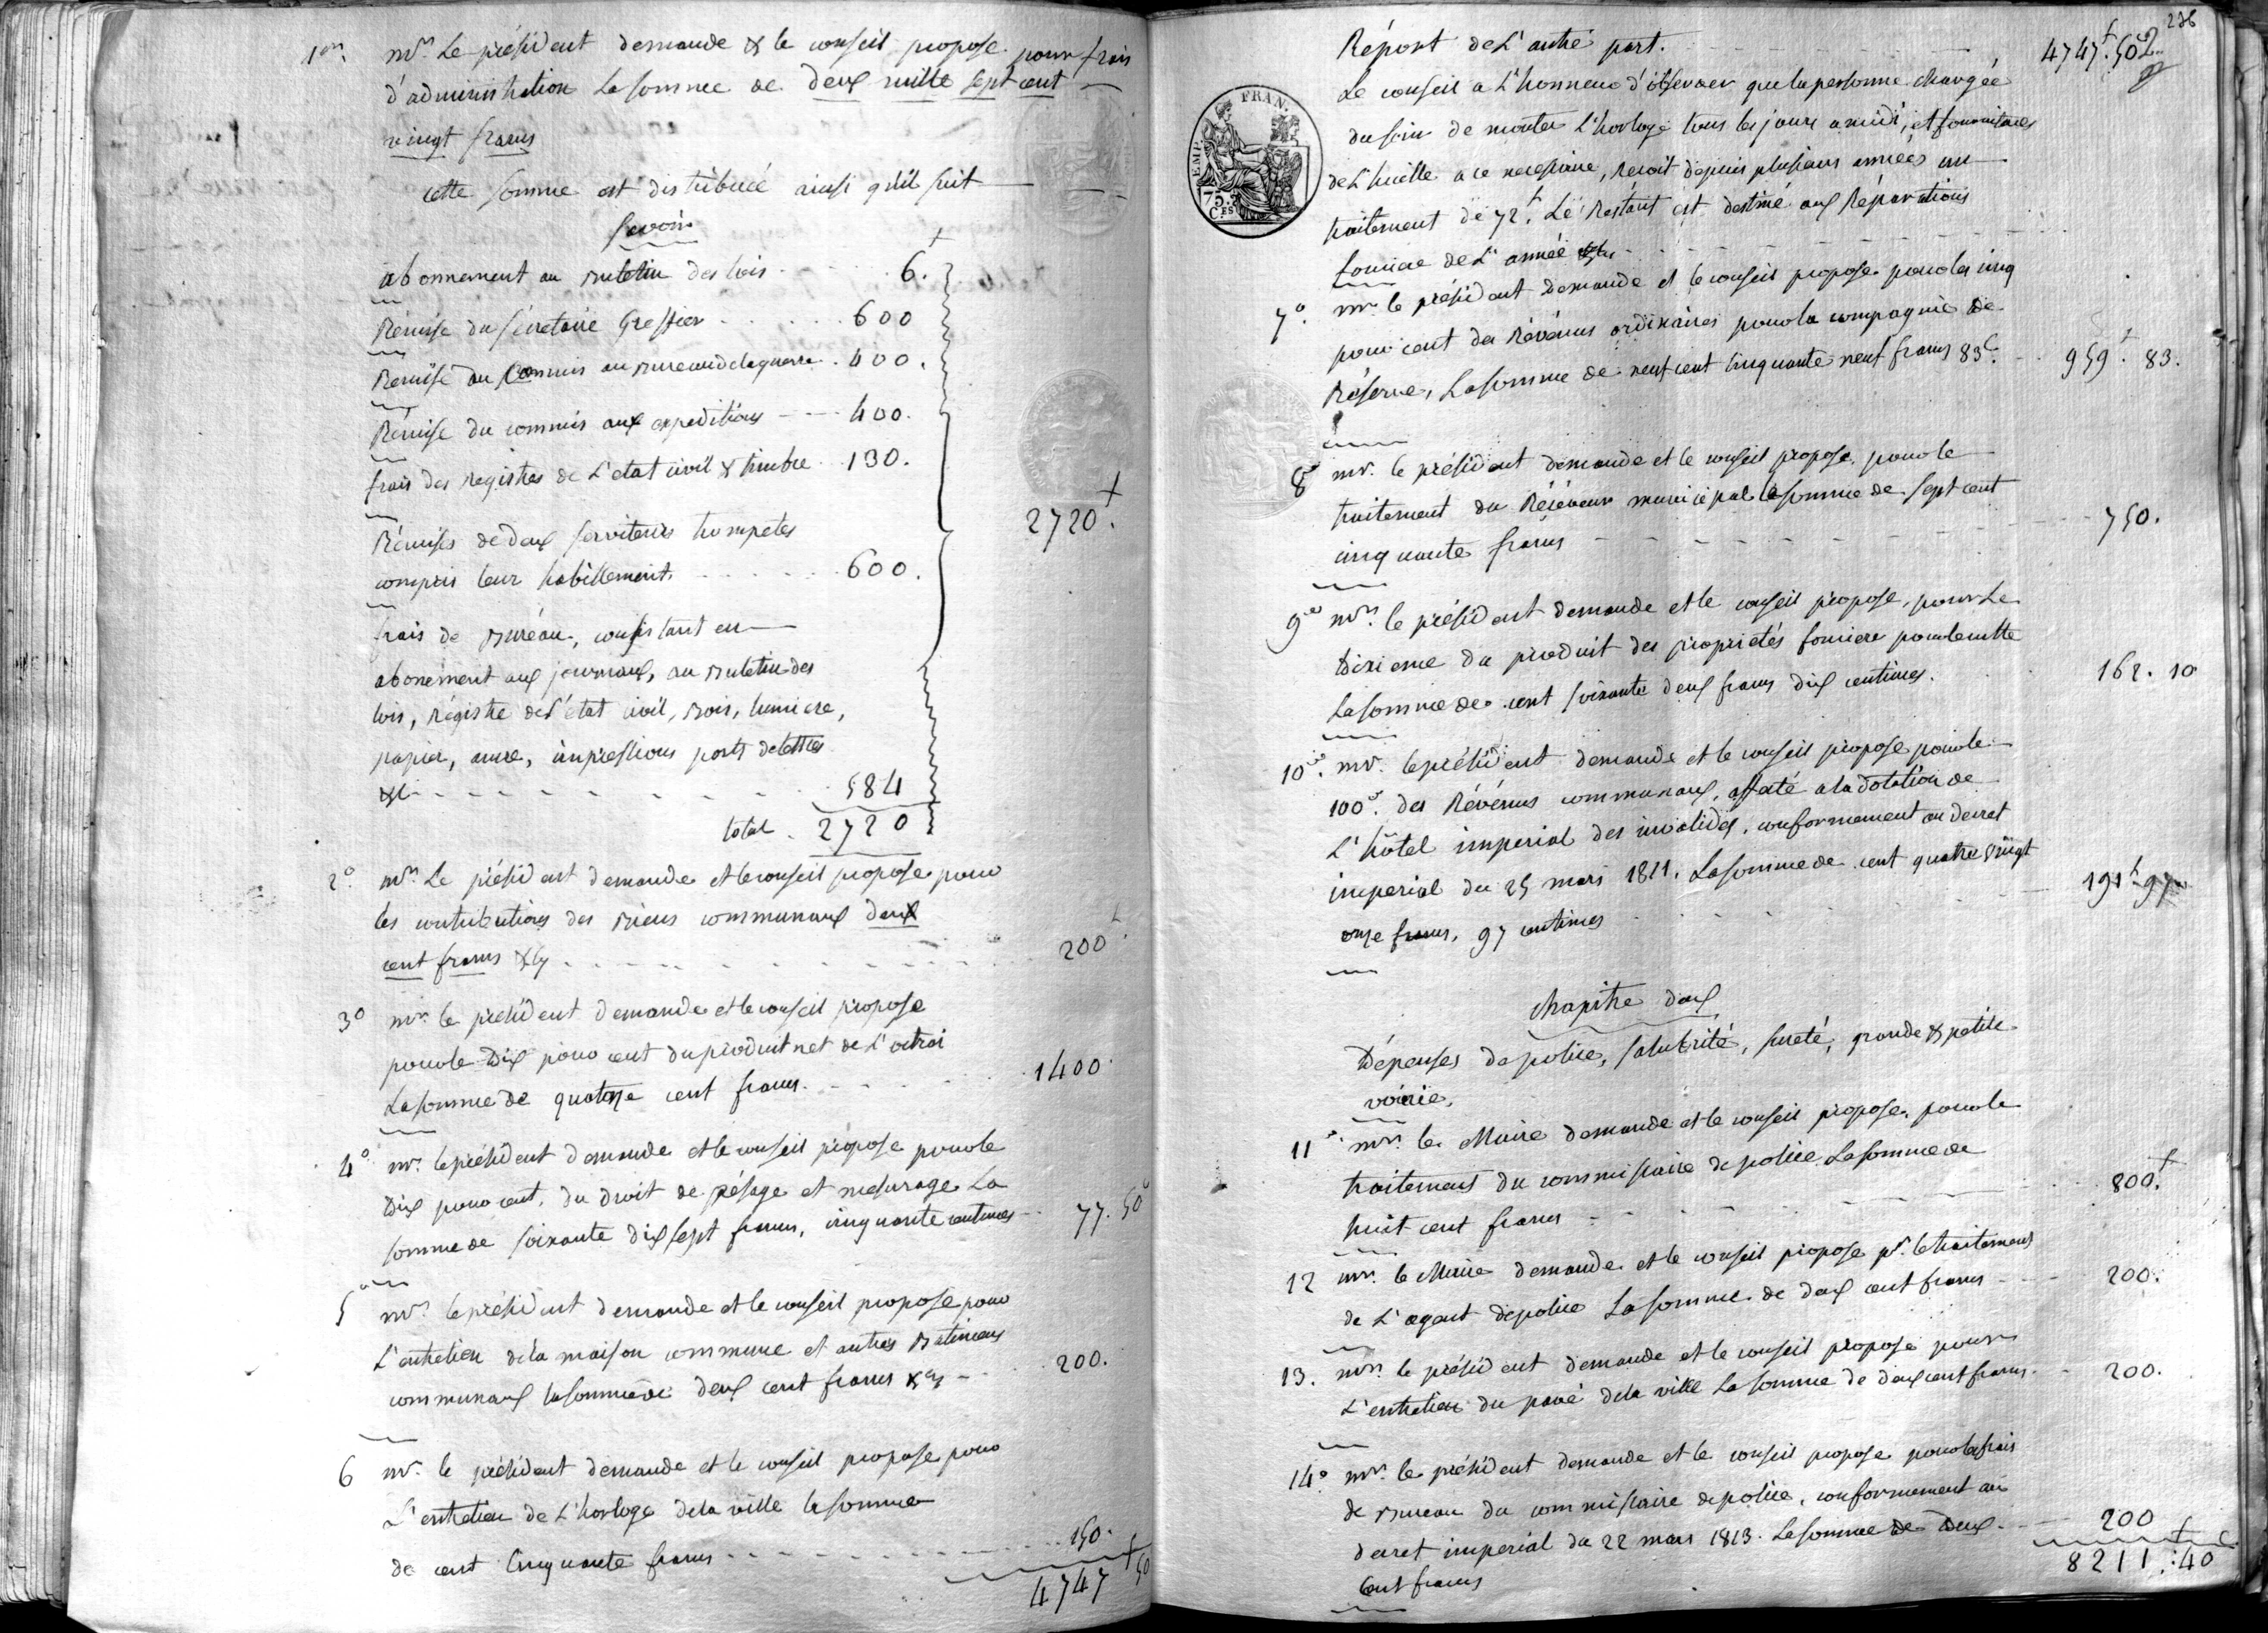 1er. mr. Le président demande & le conseil propose pour frais
d'administration La somme de deux mille sept cent
vingt francs
cette somme est distribuée ainsi qu'il suit
Savoir
abonnement au Buletin des lois 6.f
Remise du sécretaire Greffier 600
Remise du Commis au Bureau de la guerre 400.
Rémise du commis aux expeditions 400.
frais des registres de L'etat civil & timbre 130.
Rémises de deux serviteurs trompetes
compris leur habillement 600.
frais de Bureau, consistant en
abonement aux journaux, au Buletin des
lois, régistre de L'état civil, Bois, lumiere,
papier, ancre, impressions ports de lettres
&c 584
total 2720
2720.f
2.o mr. Le président demande et le conseil propose pour
les contributions des Biens communaux deux
cent francs 200f
3o mr. le président demande et le conseil propose
pour le Dix pour cent du produit net de L'octroi
La somme de quatorze cent francs. 1400.
4o mr. le président demande et le conseil propose pour le
Dix pour cent, du droit de pésage et mesurage La
somme de soixante dix sept francs, cinquante centimes 77. 50
5 mr. le président demande et le conseil propose pour
L'entretien de la maison commune et autres Batimens
communaux la somme de deux cent francs 200.
6 mr. le président demande et le conseil propose pour
L'entretien de L'horloge de la ville la somme
de cent Cinquante francs 150.
4747f 50
236
Réport de L'autre part. 4747f.50
Le conseil a L'honneur d'observer que la personne chargée
du soin de monter L'horloge tous les jours a midi, et fournitures
de L'huille a ce necessaire, recoit depuis plusieurs années un
traitement de 72f. Le Restant est destiné aux Réparations
fonciere de L'année
FRAN.
EMP.
75.
C.ES
7o. mr. le président Demande et le conseil propose pour les cinq
pour cent des Révénus ordinaires pour la compagnie De
Réserve, La somme de neuf cent cinquante neuf francs 83c. 959.f 83.
8o mr. le président demande et le conseil propose pour le
traitement du Récéveur municipal la somme de sept cent
cinquante francs 750.
9o mr. le président demande et le conseil propose, pour Le
Dixieme du produit des proprietés fonciere
La somme de cent soixante deux francs dix centimes. 162. 10
10o. mr. le président demande et le conseil propose pour le
100e. des Révénus communaux, affecté a la dotation de
L'hôtel imperial des invalides, conformement au decret
imperial du 25 mars 1811. La somme de cent quatre vingt
onze francs, 97 centimes 191f. 97
chapitre deux
Dépenses de police, salubrité, sureté, grande & petite
voirie.
11o mr. le Maire demande et le conseil propose, pour le
traitement du commissaire de police La somme de
huit cent francs 800.f
12 mr. le Maire demande et le conseil propose pr. le traitement
de L'agent de police La somme de deux cent francs 200.
13. mr. le président demande et le conseil propose pour
L'entretien du pavé de la ville La somme de deux cent francs. 200.
14o mr. le président demande et le conseil propose pour les frais
de Bureau du commissaire de police, conformement au
decret imperial du 22 mars 1813. La somme de deux 200
Cent francs
8211f.40c